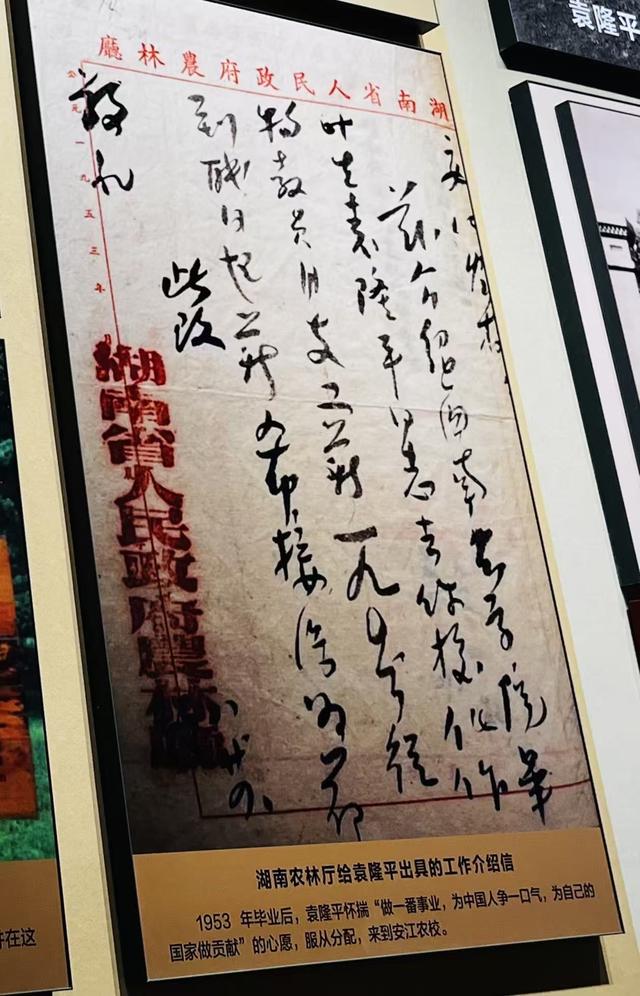 湖南省人民政府農林廳
兹介绍西南农学院毕
业生袁隆平同志去你校
物教员月支工薪一九
到職日起
希接洽为荷
此致
敬礼
公元一九五三年
湖南省人民政府農林廳
湖南农林厅给袁隆平出具的工作介绍信
1953 年毕业后，袁隆平怀揣“做一番事业，为中国人争一口气，为自己的
国家做贡献”的心愿，服从分配，来到安江农校。
袁隆平
在这